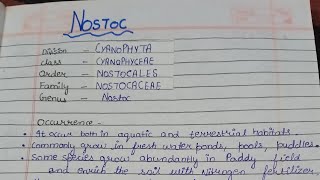 NOSTOC
Division - CYANOPHYTA
Class - CYANOPHYCEAE
Order - NOSTOCALES
Family - NOSTOCACEAE
Genus - Nostoc
Occurrence -
• It occur both in aquatic and terrestrial habitats.
• Commonly grow in fresh water ponds, pools, puddles.
• Some species grow abundantly in Paddy field
and enrich the soil with Nitrogen fertilizer.